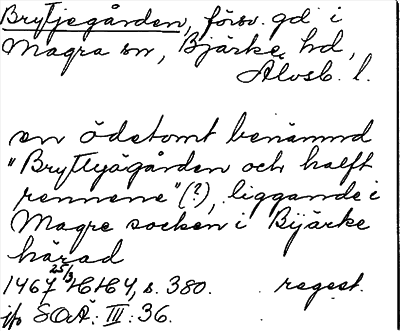 Bryttjegården, försv. gd i
Magra sn, Bjärke hd,
Älvsb. l.
en ödetomt benämnd
"Bryttyägården och halft
rennene" (?), liggande i
Magre socken i Bijärke
härad
1467 25/3 HH4, s. 380. regest.
jfr SOÄ: III: 36.